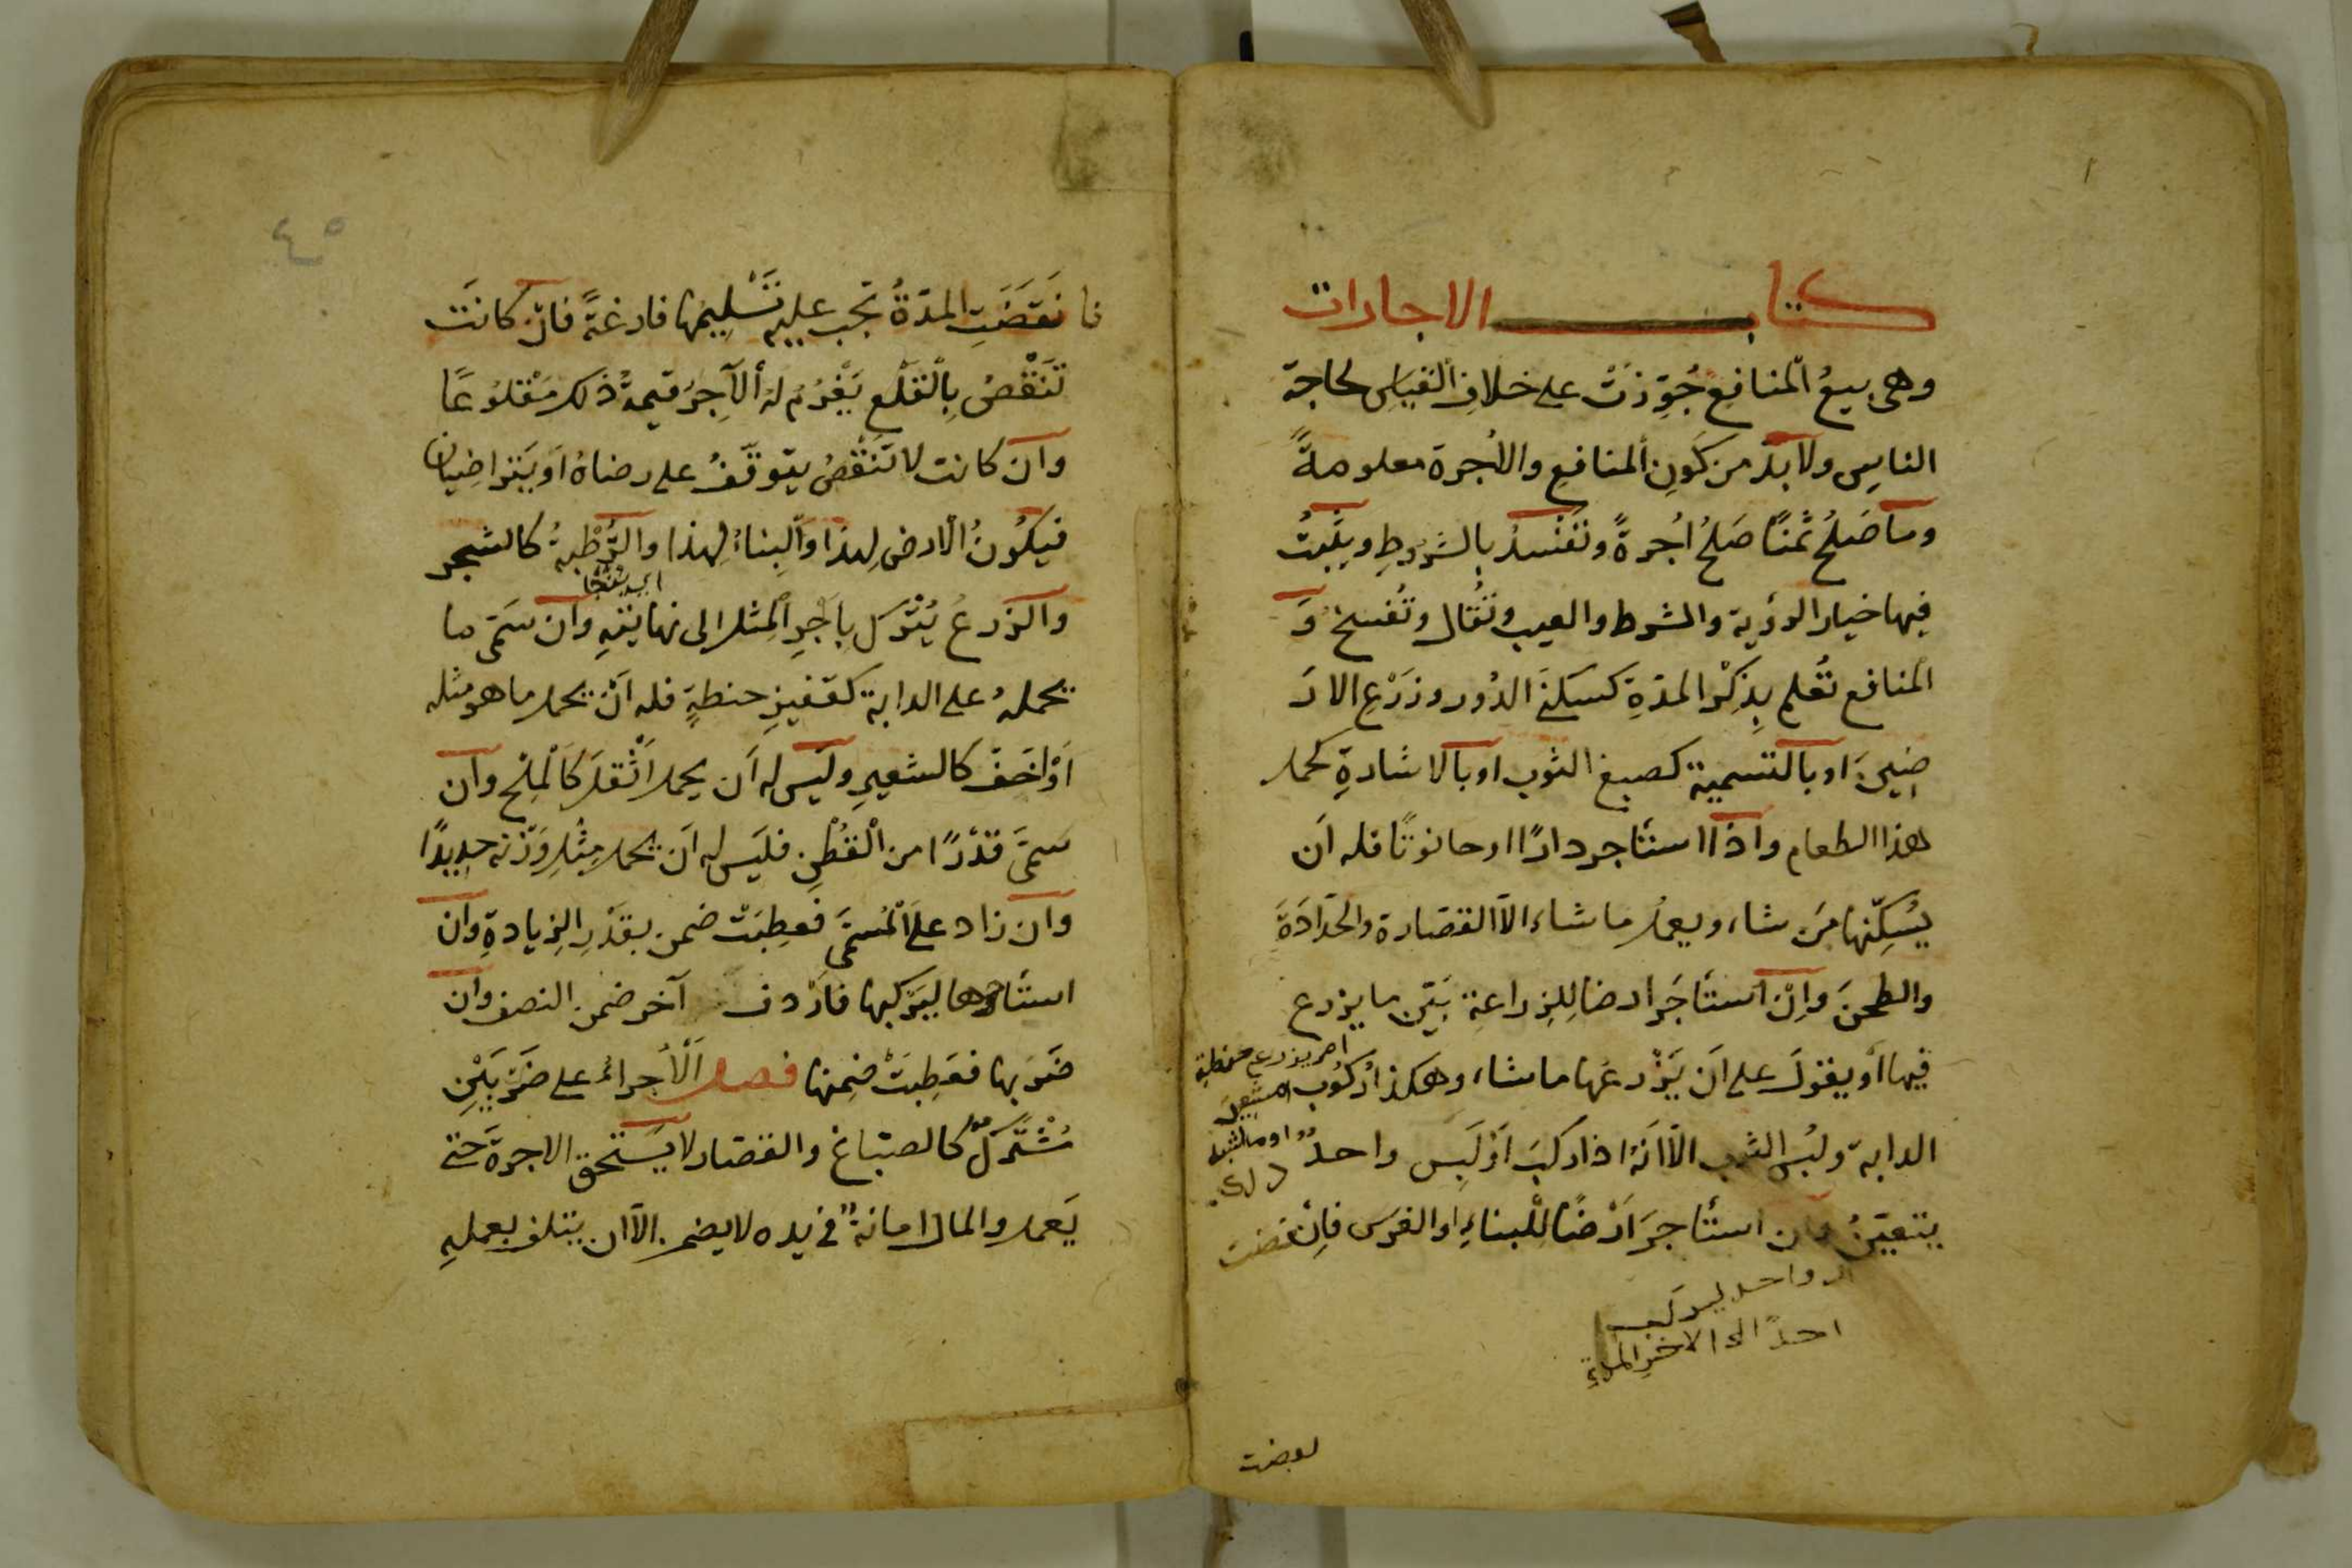 كتاب الاجارات
وهى بيعُ المنافِع جُوِّزَتْ على خلافِ القياسِ لحاجة
الناسِ ولا بدّ من كَونِ المنافعِ والأجرة معلومةً
وما صَلُحَ ثمنًا صَلُحَ اُجرةً وتَفْسدُ بالشروطِ ويثبتُ
فيها خيار الرؤية والشرط والعيب وتُقال وتُفسخ وَ
المنافع تُعلم بِذِكْرِ المدّةِ كسكنَى الدُور وزَرْعِ الارَ
ضِينَ او بالتسمية كصبغ الثوب او بالاشارةِ كحمل
هذا الطعام واذا استأجر دارًا او حانوتًا فله اَن
يُسكِنها مَن شاء ويعمل ما شاء الّا القصارة والحَدّادَةَ
والطحنَ واِنْ استأجَر ارضا لِلزراعةِ بَيّن ما يزرع
فيها اَو يقولَ على اَن يَزْرعَها ما شاء وهكذا ركُوب
الدابة ولبْس الثوب الّا انّهُ اذا ركبَ اَوْ لَبِس واحدٌ
يتعيّنُ وان استأجرَ اَرْضًا للْبناءِ او الغرس فاِنْقضت
احر يزرع حنطة
او شعير
واحد ليركب
احدًا الى الاخر المدة
فانقَضَتِ المدّةُ تجب عليه تَسْلِيمُها فارغةً فان كانَت
تَنْقُصُ بِالْقَلْعِ يَغْرُمُ لهُ الآجِرُ قيمةَ ذلك مَقْلوُعًا
وان كانت لا تَنْقُصُ يتوقّفُ على رضاهُ اَو يتراضيان
فيَكُونُ الارض لِهذا وَالبِناءُ لِهذا والرَّطْبةُ كالشجر
والزرعُ يُتْرك باَجرِ المِثل الى نهايتهِ وان سَمّى ما
يحملهُ على الدابة كقفيزِ حنطةٍ فله اَنْ يحمل ما هو مثله
اَوْ اخَفّ كالشعيرِ ولَيس له اَن يحمل اَثْقلَ كَالْملْح وان
سَمَّى قَدْرًا من الْقُطْنِ فليَس له اَن يحمل مِثْلِ وَزْنه حديدًا
وان زاد على المُسَمَّى فَعطِبَتْ ضمن بقَدْرِ الزيادةِ وان
استأجرها ليَركبها فاَرْدف آخر ضمن النصف وان
ضَرَبها فعَطِبَتْ ضمِنها فصل الْاُجراءُ على ضَرْبَيْنِ
مُشْتَركٌ كالصبّاغ والقصّار لا يَستحق الاجرة حَتى
يَعمل والمال امانةٌ فى يده لا يضمن الّا ان يتلف بعملهِ
لوبضت
٤٥